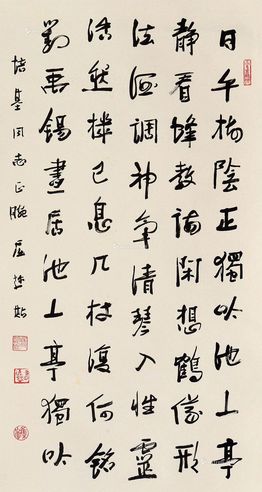 日午樹陰正獨吟池上亭
靜看蜂教誨閑想鶴儀形
法酒調神氣清琴入性靈
浩然機已息几杖復何銘
劉禹錫晝居池上亭獨吟
培基同志正腕 屈趁斯